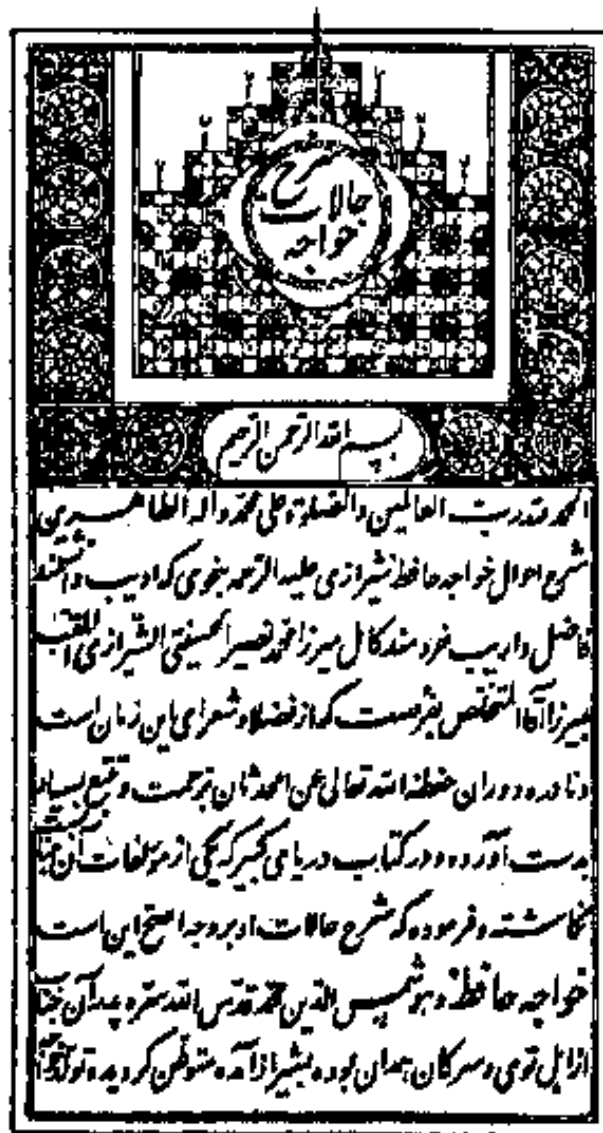 شرح
حالات
خواجه
بسم الله الرحمن الرحیم
الحمد لله رب العالمین والصلوة علی محمد واله الطاهرین
شرح احوال خواجه حافظ شیرازی علیه الرحمه بنحوی که ادیب دانشمند
فاضل واریب خردمند کامل میرزا محمد نصیر الحسینی الشیرازی الملقب
بمیرزا آقا المتخلص بفرصت که از فضلا و شعرای این زمان است
و نادره دوران حفظه الله تعالی عن الحدثان بزحمت و تتبع بسیار
بدست آورده و در کتاب دریای کبیر که یکی از مؤلفات آن جناب است
نگاشته و فرموده که شرح حالات او بروجه اصح این است
خواجه حافظ و هو شمس الدین محمد قدس الله سره پدر آن جناب
از اهل توی و سرکان همدان بوده بشیراز آمده متوطن گردیده تولد خواجه